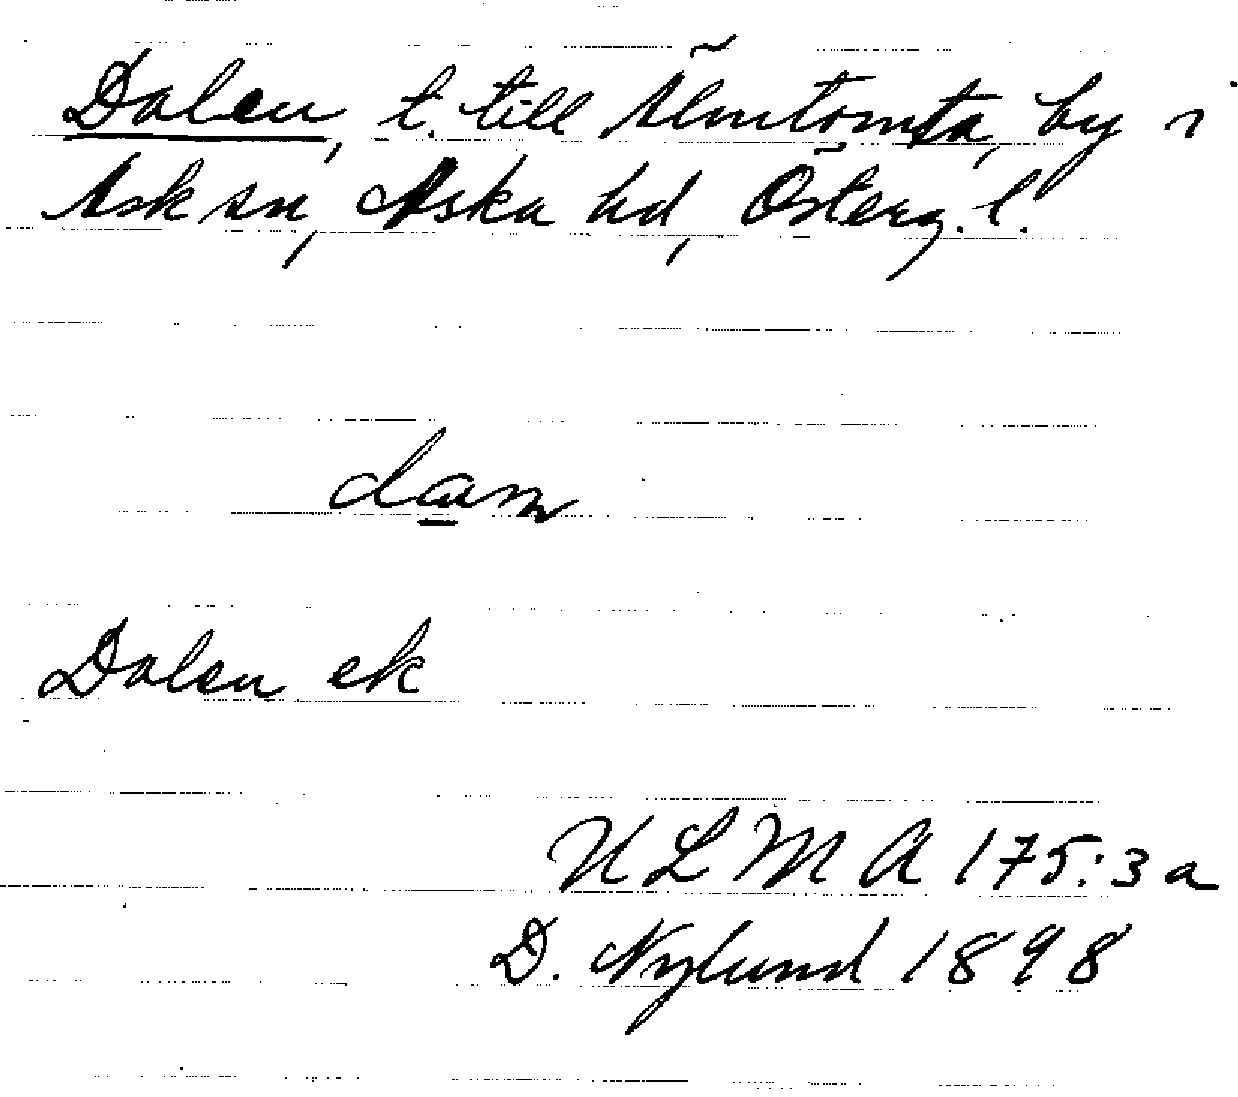 Dalen, t. till Älmtomta, by i
Ask sn, Aska hd, Österg. l.
Dalen ek
ULMA 175:3a
D. Nylund 1898